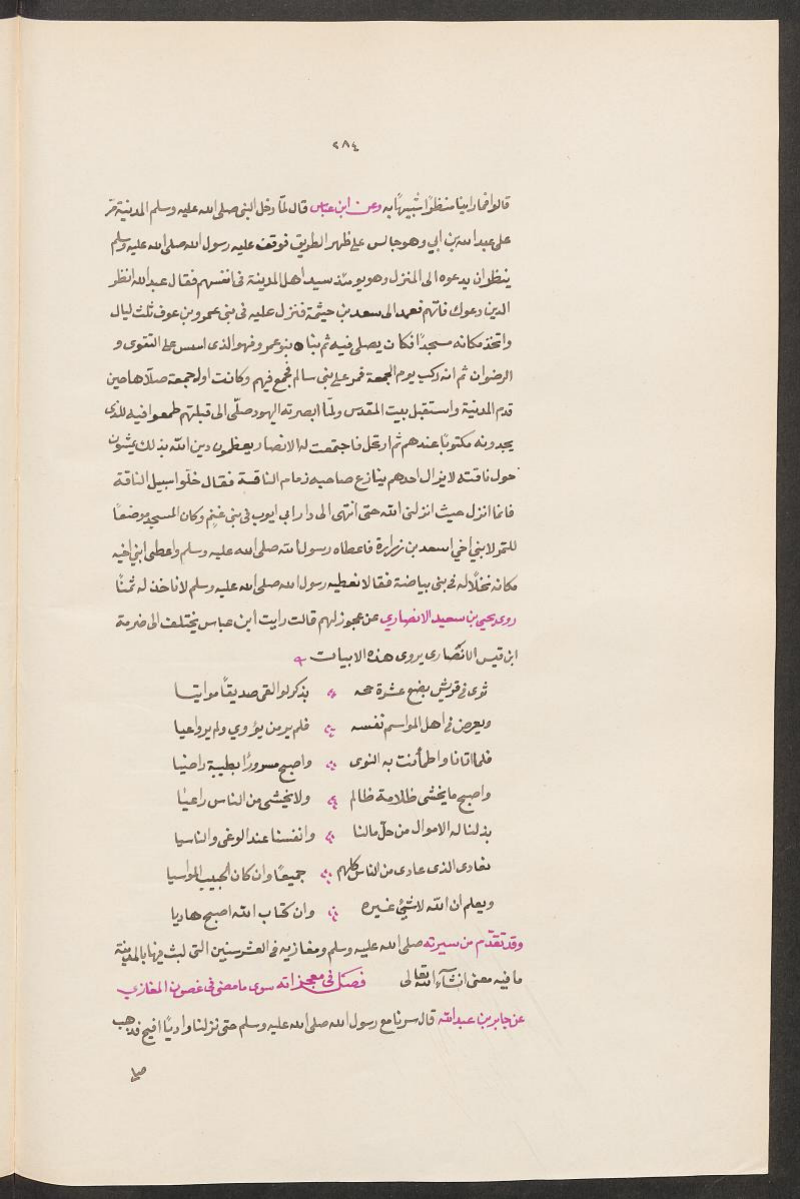 ٢٨٤
قالوا فما راينا منظرًا شبيهًا به وعن ابن عباس قال لمّا دخل النبى صلى الله عليه وسلم المدنية مرّ
على عبد الله بن ابي وهو جالس على ظهر الطريق فوقف عليه رسول الله صلى الله عليه وسلم
ينظر ان يدعوه الى المنزل وهو يومئذ سيد اهل المدينة فى انفسهم فقال عبد الله انظر
الذين دعوك فاتهم فعمد الى سعد بن حيثمة فنزل عليه فى بنى عمرو بن عوف ثلث ليال
واتخذ مكانه مسجدًا فكان يصلى فيه ثم بناه بنو عمرو فهو الذى اسس على التقوى و
الرضوان ثم انه ركب يوم الجمعة فمر على بنى سالم فجمع فيهم وكانت اول جمعة صلاها حين
قدم المدنية واستقبل بيت المقدس ولمّا ابصرته اليهود صلّى الى قبلتهم طمعوا فيه للذى
يجدونه مكتوبًا عندهم ثم ارتحل فاجتمعت له الانصار يعظمون دين الله بذلك يمشون
حول ناقته لا يزال احدهم ينازع صاحبه زمام الناقة فقال خلّوا سبيل الناقة
فانما انزل حيث انزلنى الله حتى انتهى الى دار ابى ايوب فى بنى غنم وكان المسجد موضعًا
للتمر لابني اخي اسعد بن زرارة فاعطاه رسول الله صلى الله عليه وسلم واعطى ابني اخيه
مكانه نخلًا له فى بنى بياضة فقالا نعطيه رسول الله صلى الله عليه وسلم لا ناخذ له ثمنًا
روى يحيى بن سعيد الانصاري عن عجوز لهم قالت رايت ابن عباس يختلف الى ضرمة
ابن قيس الانصارى يروى هذه الابيات
ثوى فى قريش بضع عشرة حجه يذكر لو القى صديقًا مواتيا
ويعرض فى اهل المواسم نفسه فلم ير من يؤوي ولم ير واعيا
فلما اتانا واطمأنت به النوى واصبح مسرورًا بطيبة راضيا
واصبح ما يخشى ظلامة ظالم ولا يخشى من الناس راعيا
بذلنا له الاموال من حلّ مالنا وانفسنا عند الوغى والتاسيا
نعادى الذى عادى من الناس كلهم جميعًا وان كان الحبيب المواسيا
ويعلم ان الله لا شئ غيره وان كتاب الله اصبح هاديا
وقد تقدّم من سيرته صلى الله عليه وسلم ومغازيه فى العشر سنين التى لبث فيها بالمدينة
ما فيه معنى انشآء الله تعالى فصل فى معجزاته سوى ما مضى فى غصون المغازي
عن جابر بن عبد الله قال سرنا مع رسول الله صلى الله عليه وسلم حتى نزلنا واديًا افيح فذهب